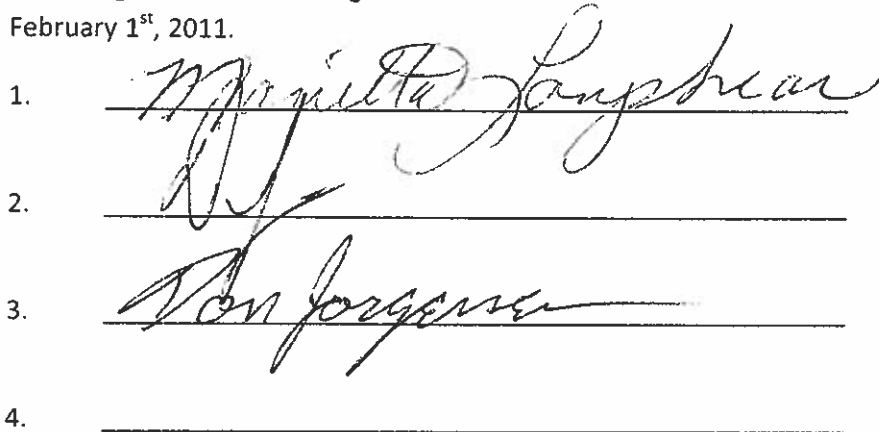 February 1st, 2011.
1. Marietta Langshear
2.
3. Don Jorgensen
4.